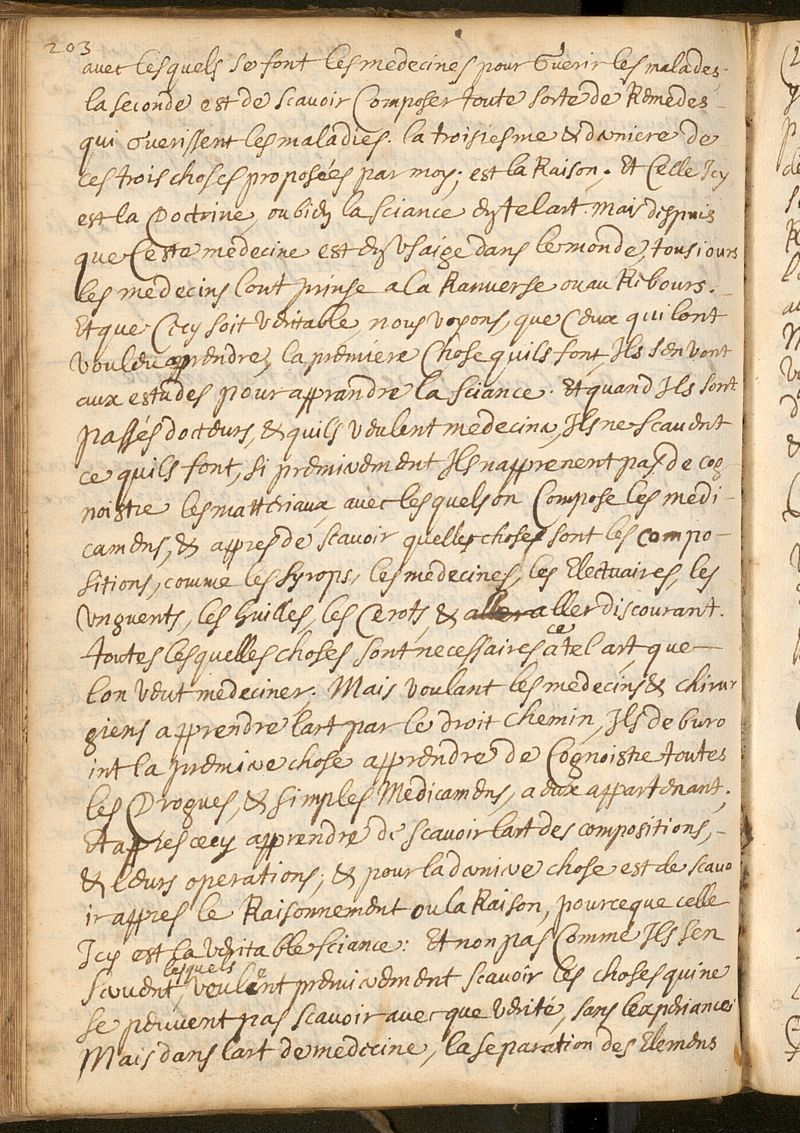 203
avec lesquels se font les medecines pour Guerir les malades.
la seconde est de scavoir Composer toute sorte de Remedes
qui Guerissent les maladies. la troisiesme & daniere de
ces trois choses proposées par moy, est la Raison. Et Celle Icy
est la Doctrine, ou bien la sciance en tel art. Mais despuis
que Ceste medecine est en Vsaige dans le monde, tousiours
les medecins lont prinse a la Ranuerse ou au Rebours.
Et que Cecy soit Veritable, nous voyons, que Ceux qui lont
vouleu apprendre, la premiere Chose quils font, Ils sen vont
aux estudes pour apprandre la sciance. Et quand Ils sont
passés docteurs, & quils veulent medecina, Ils ne scauent
ce quils font, si premierement Ils napprenent pas de cog
noistre les matteriaux avec lesquels on Compose les medi-
camens, & appres de scavoir quelles choses sont les compo-
sitions, comme les syrops, les medecines, les Electuaires, les
Vnguents, les huilles, les Cerots, & aller discourant.
toutes lesquelles choses sont necessaires a ce tel art, que
lon veut medeciner. Mais voulant les medecins & chirur
giens apprendre lart par le droit chemin, Ils deburo
int la premiere chose apprendre de Cognoistre toutes
les Drogues, & simples Medicamens, a eux appartenant.
Et appres cecy apprendre de scavoir lart des compositions,-
& leurs operations; & pour la daniere chose est de scavo
ir appres le Raisonnement ou la Raison, pource que celle
Icy est la veritable sciance: Et non pas Comme Ils sen
scauent, lesquels veulent premierement scavoir les choses qui ne
se peuvent pas scavoir avecque verité, sans lexperiance
Mais dans lart de medecine, la separation des Elemens